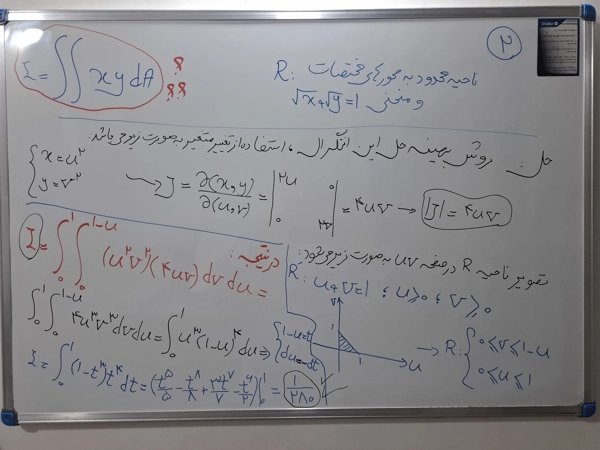 ۲
I = ∬ xy dA ؟ ؟؟
R: ناحیه محدود به محورهای مختصات
و منحنی √x+√y=1
حل: روش بهینه حل این انتگرال، استفاده از تغییر متغیر به صورت زیر می باشد:
{ x=u^۲
y=v^۲ → J = ∂(x,y)/∂(u,v) = |۲u ۰ ۰ ۲v| = ۴uv → |J| = ۴uv
تصویر ناحیه R در صفحه uv به صورت زیر می شود:
R: u+v=1 ، u≥۰ ، v≥۰
1 1 u v
→ R: { ۰≤v≤1-u
۰≤u≤1
در نتیجه:
I = ∫₀¹ ∫₀^{1-u} (u^۲v^۲)(۴uv) dv du =
∫₀¹ ∫₀^{1-u} ۴u^۳v^۳ dv du = ∫₀¹ u^۳(1-u)^۴ du ⇒ { 1-u=t
du=-dt
I = ∫₀¹ (1-t)^۳ t^۴ dt = (t^۵/۵ - t^۸/۸ + ۳t^۷/۷ - t^۶/۲)|₀¹ = 1/۲۸۰